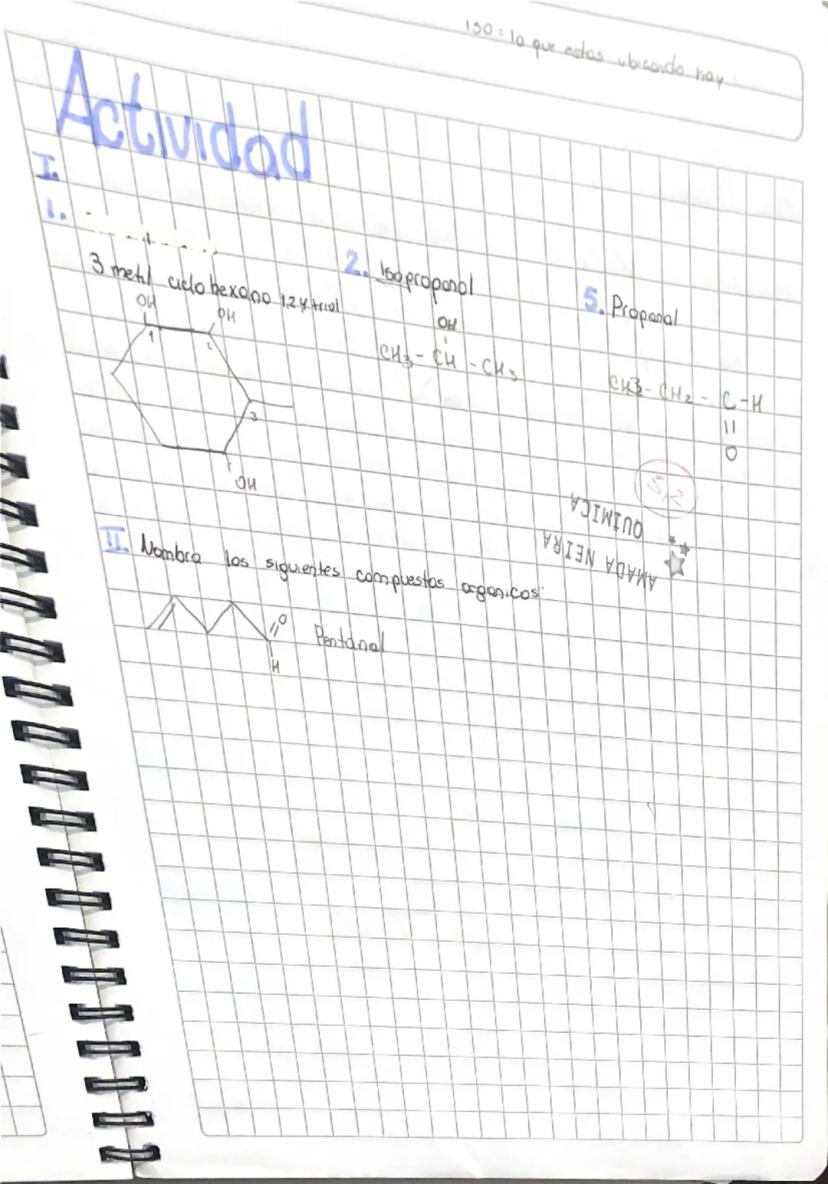 iso = lo que estas ubicando hay
Actividad
I.
1.
3 metil ciclo hexano 1,2,4 triol
OH
OH
1
2
3
OH
2. Isopropanol
OH
CH3 - CH - CH3
5. Propanal
CH3 - CH2 - C - H
O
AMADA NEIRA
QUIMICA
II. Nombra los siguientes compuestos organicos:
O
H
Pentanal